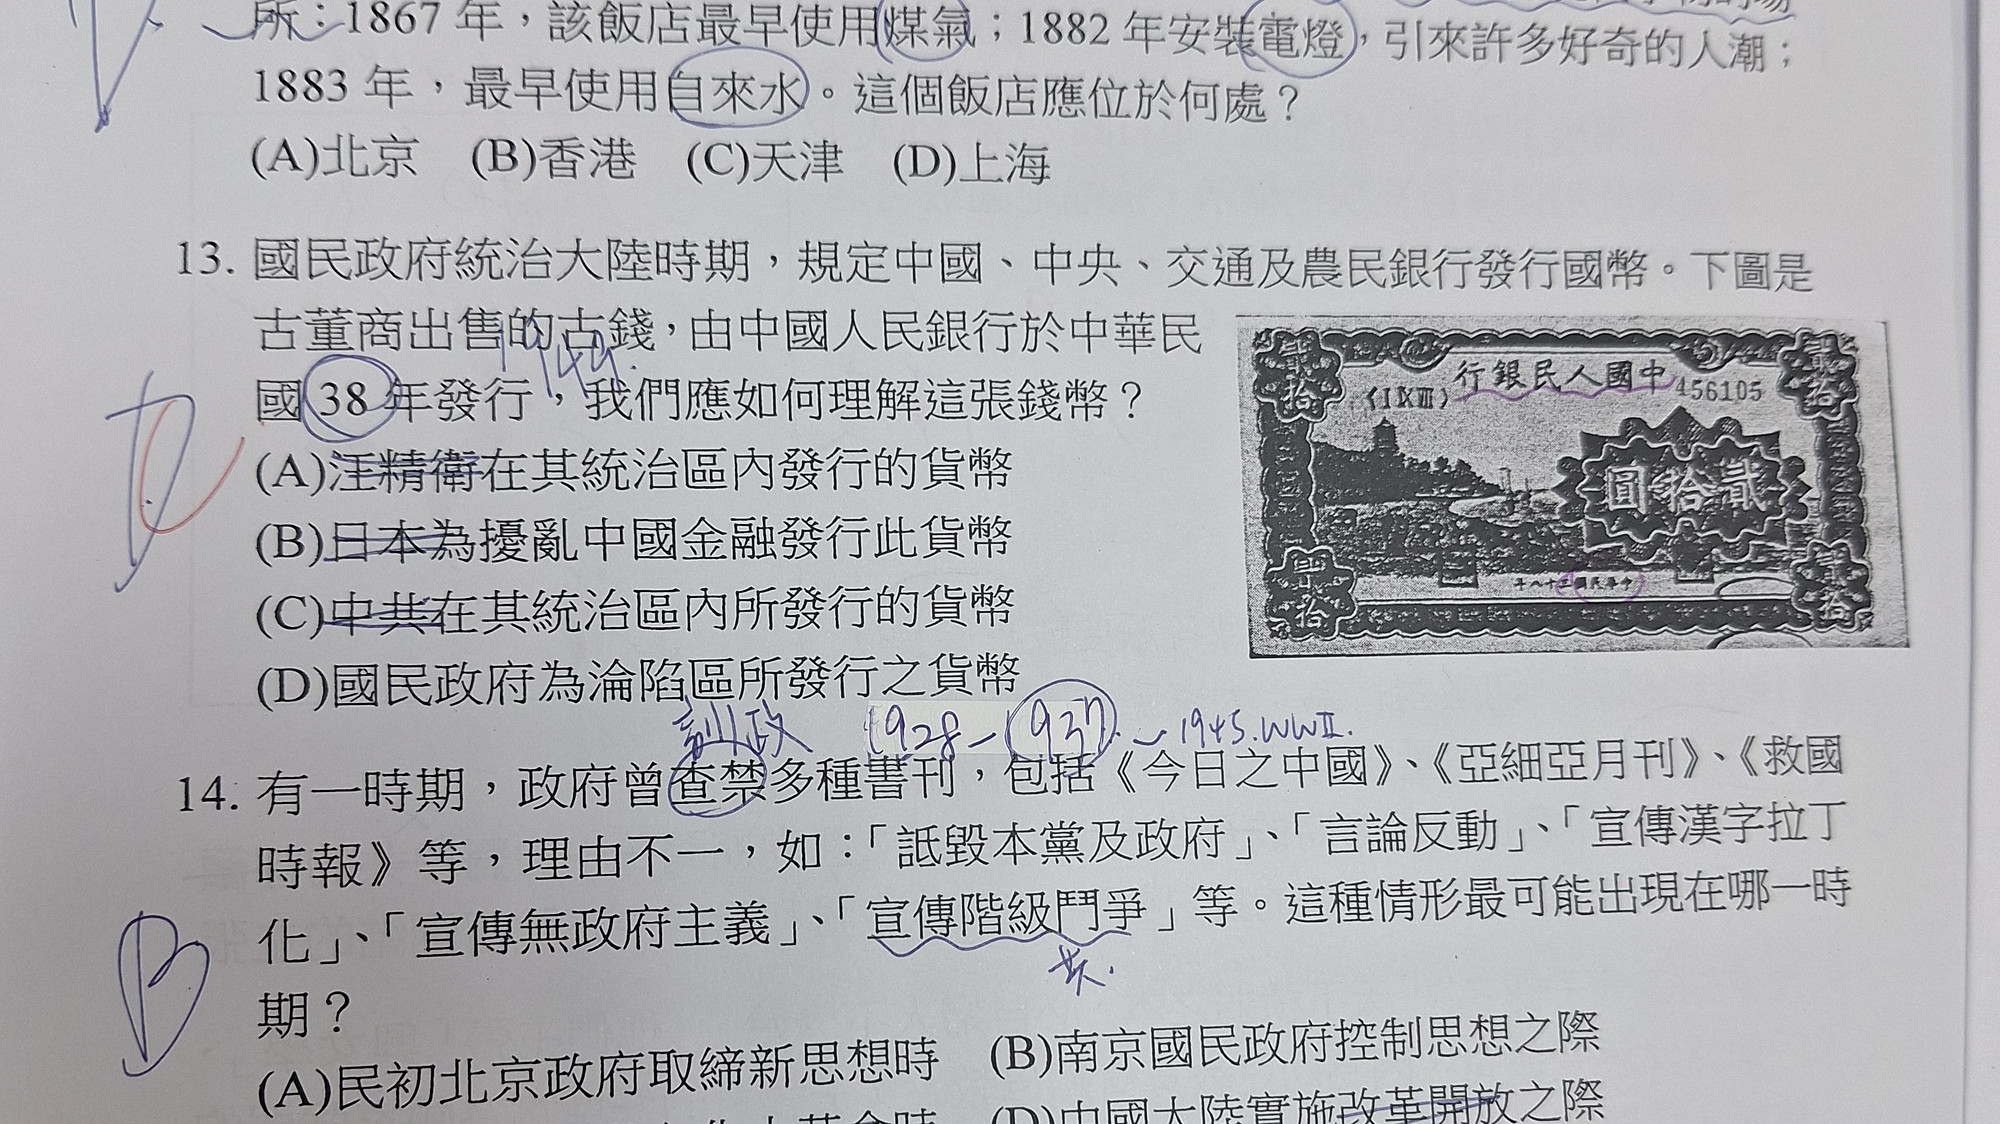 所：1867 年，該飯店最早使用煤氣；1882 年安裝電燈，引來許多好奇的人潮；
1883 年，最早使用自來水。這個飯店應位於何處？
(A)北京 (B)香港 (C)天津 (D)上海
13. 國民政府統治大陸時期，規定中國、中央、交通及農民銀行發行國幣。下圖是
古董商出售的古錢，由中國人民銀行於中華民
1949.
國 38 年發行，我們應如何理解這張錢幣？
(A)汪精衛在其統治區內發行的貨幣
(B)日本為擾亂中國金融發行此貨幣
(C)中共在其統治區內所發行的貨幣
(D)國民政府為淪陷區所發行之貨幣
行銀民人國中
〈ⅠⅨⅧ〉 456105
圓拾貳
年八十三國民華中
訓政 1928-1937. ~1945. WWII.
14. 有一時期，政府曾查禁多種書刊，包括《今日之中國》、《亞細亞月刊》、《救國
時報》等，理由不一，如：「詆毀本黨及政府」、「言論反動」、「宣傳漢字拉丁
化」、「宣傳無政府主義」、「宣傳階級鬥爭」等。這種情形最可能出現在哪一時
共.
B
期？
(A)民初北京政府取締新思想時 (B)南京國民政府控制思想之際
(D)中國大陸實施改革開放之際